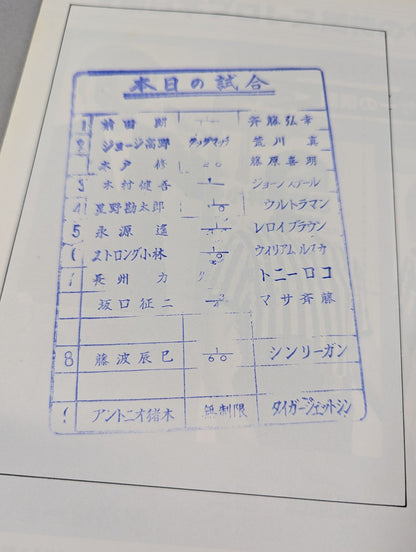 本日の試合
1 前田 明 斉藤弘幸
2 ジョージ高野 タッグマッチ 荒川 真
木戸 修 20 藤原喜明
3 木村健吾 ジョー
4 星野勘太郎 1/0 ウルトラマン
5 永源 遙 レロイブラウン
6 ストロング小林 ウィリアム
7 長州 力 トニーロコ
坂口征二 マサ斉藤
8 藤波辰巳 1/60 シンリーガン
9 アントニオ猪木 無制限 タイガージェットシン